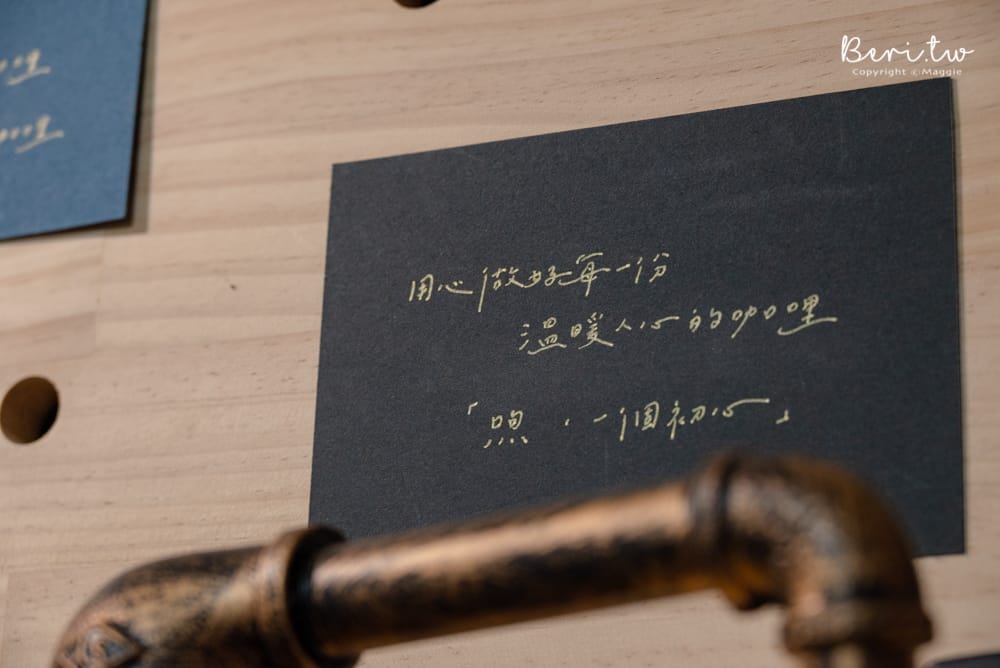 Beri.tw
Copyright © Maggie
用心做好每一份
溫暖人心的咖哩
「煦、一個初心」